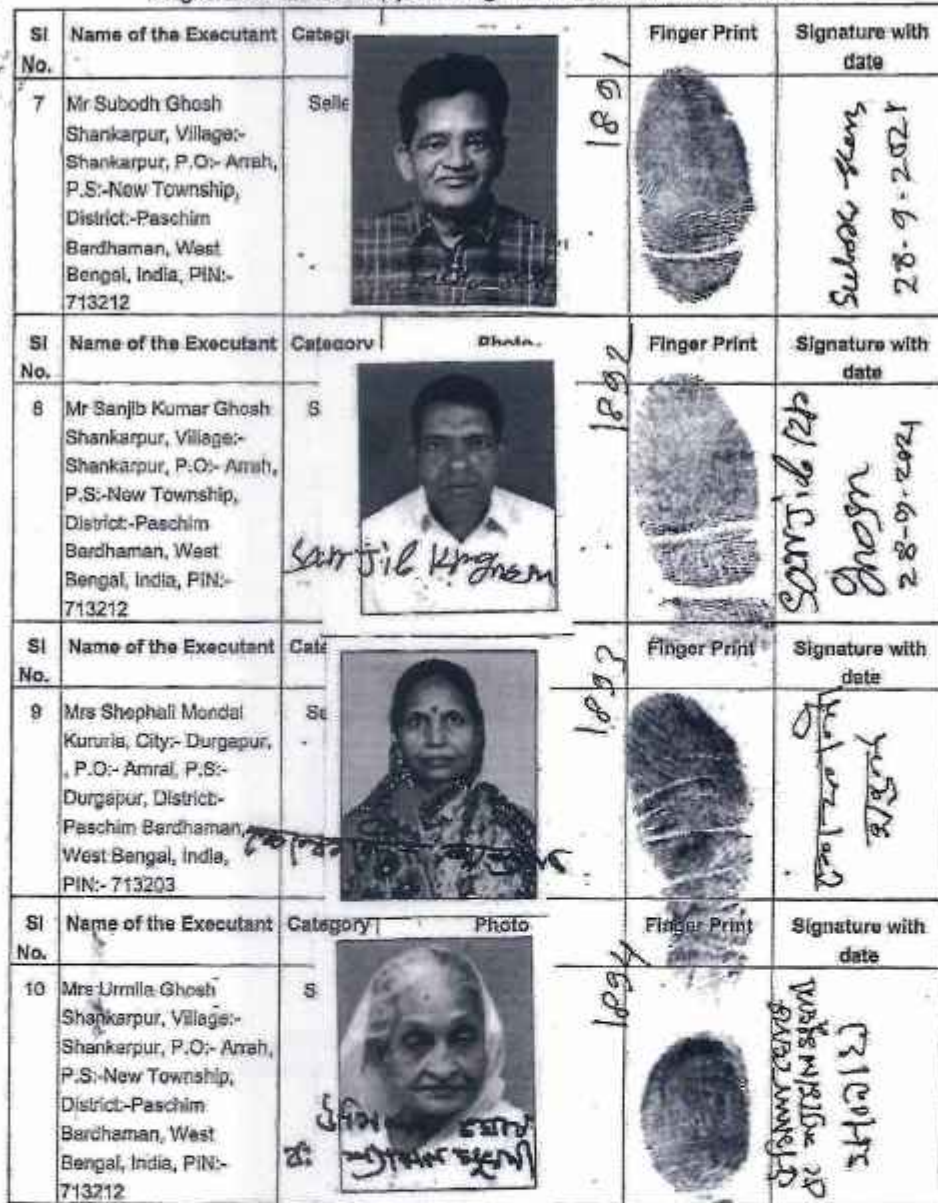 Sl No. Name of the Executant Finger Print Signature with date
7 Mr Subodh Ghosh
Shankarpur, Village:-
Shankarpur, P.O:- Arrah,
P.S:-New Township,
District:-Paschim
Bardhaman, West
Bengal, India, PIN:-
713212
1891
28-9-2021
Sl No. Name of the Executant Category Photo Finger Print Signature with date
8 Mr Sanjib Kumar Ghosh
Shankarpur, Village:-
Shankarpur, P.O:- Arrah,
P.S:-New Township,
District:-Paschim
Bardhaman, West
Bengal, India, PIN:-
713212
Sanjib
1892
Sanjib
Ghosh
28-09-2021
Sl No. Name of the Executant Finger Print Signature with date
9 Mrs Shephali Mondal
Kururia, City:- Durgapur,
, P.O:- Amrai, P.S:-
Durgapur, District:-
Paschim Bardhaman,
West Bengal, India,
PIN:- 713203
1893
Sl No. Name of the Executant Category Photo Finger Print Signature with date
10 Mrs Urmila Ghosh
Shankarpur, Village:-
Shankarpur, P.O:- Arrah,
P.S:-New Township,
District:-Paschim
Bardhaman, West
Bengal, India, PIN:-
713212
1894